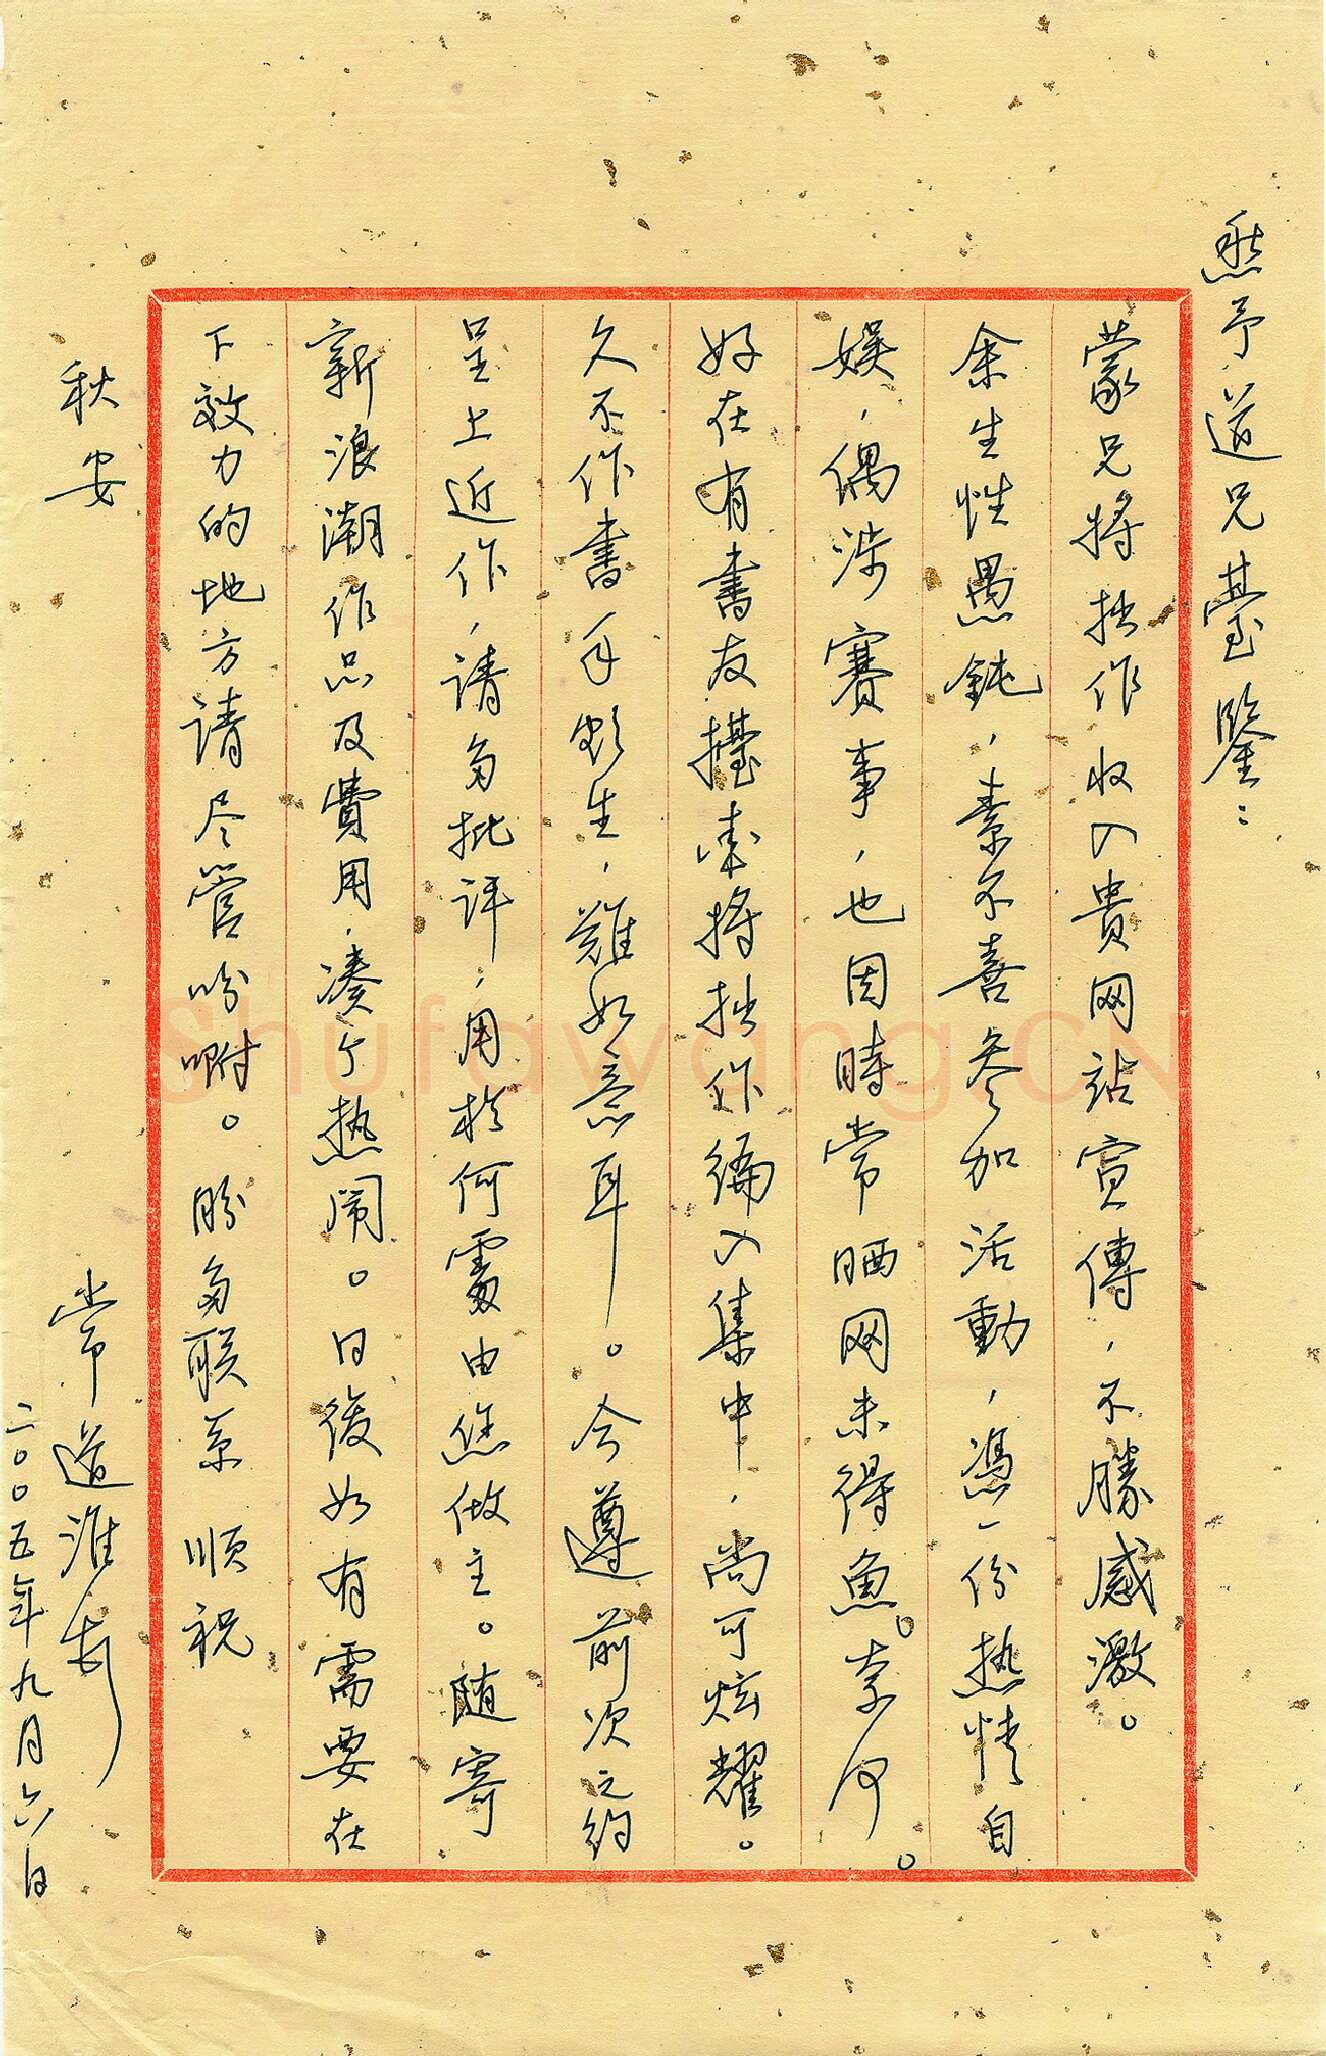 愁予道兄臺鑒：
蒙兄將拙作收入貴网站宣傳，不勝感激。
余生性愚鈍，素不喜参加活動，憑一份热情自
娱，偶涉賽事，也因時常晒网未得魚。奈何。
好在有書友擡愛將拙作编入集中，尚可炫耀。
久不作書，手颇生，難如意耳。今遵前次之约
呈上近作，请多批评，用於何處由您做主。随寄
新浪潮作品及費用，凑个热闹。日後如有需要在
下效力的地方请尽管吩咐。盼多联系 順祝
秋安
常道淮
二〇〇五年九月六日
Shufawang.CN